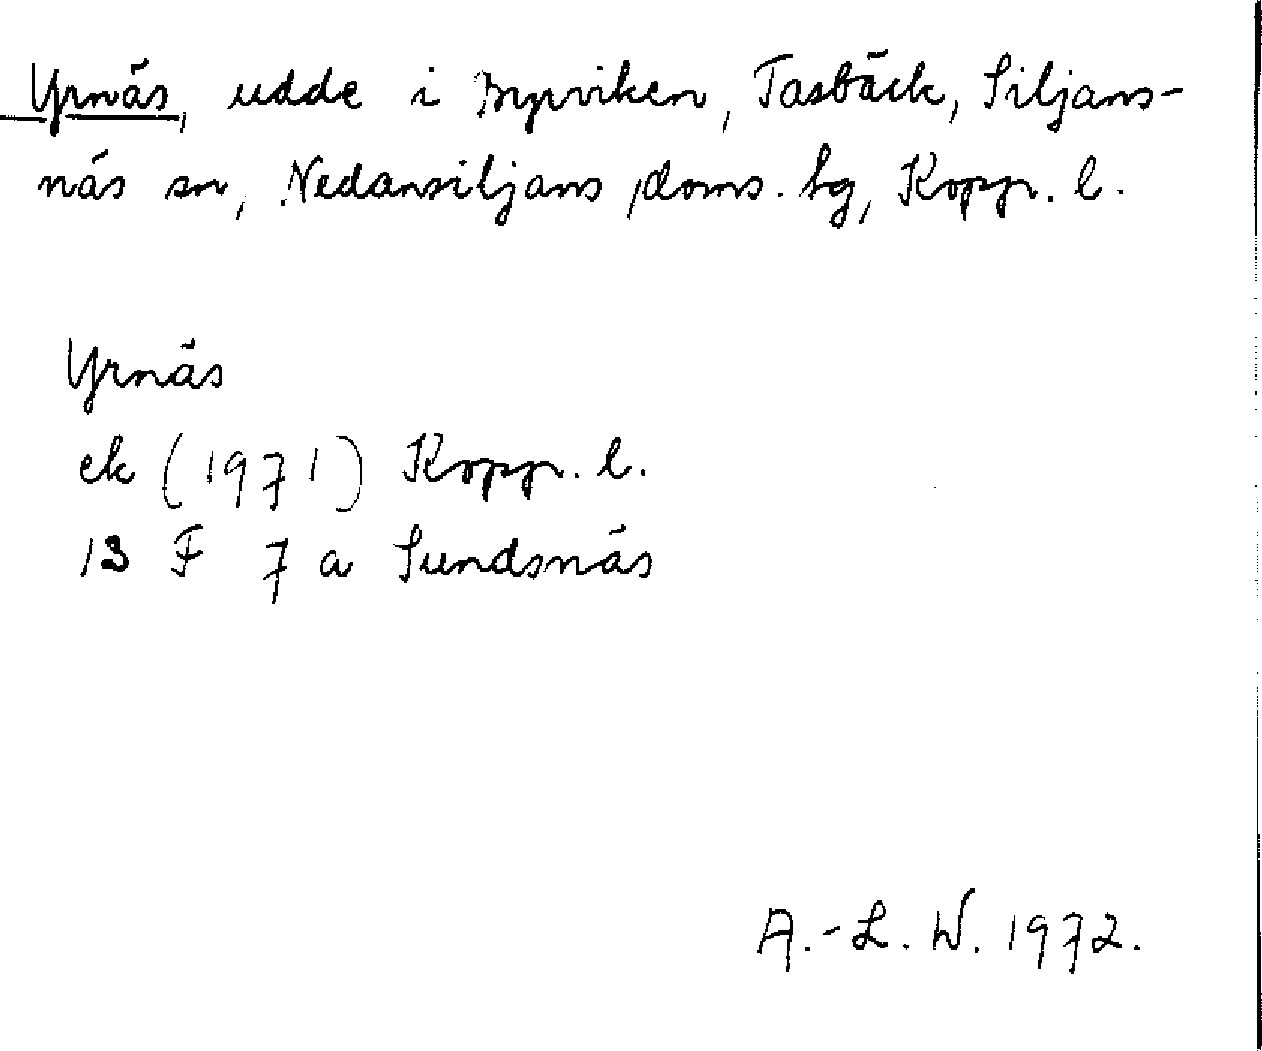 Yrnäs, udde i Byrviken, Tasbäck, Siljans-
näs sn, Nedansiljans doms. hg, Kopp. l.
Yrnäs
ek (1971) Kopp. l.
13 F 7 a Sundsnäs
A.-L. W. 1972.